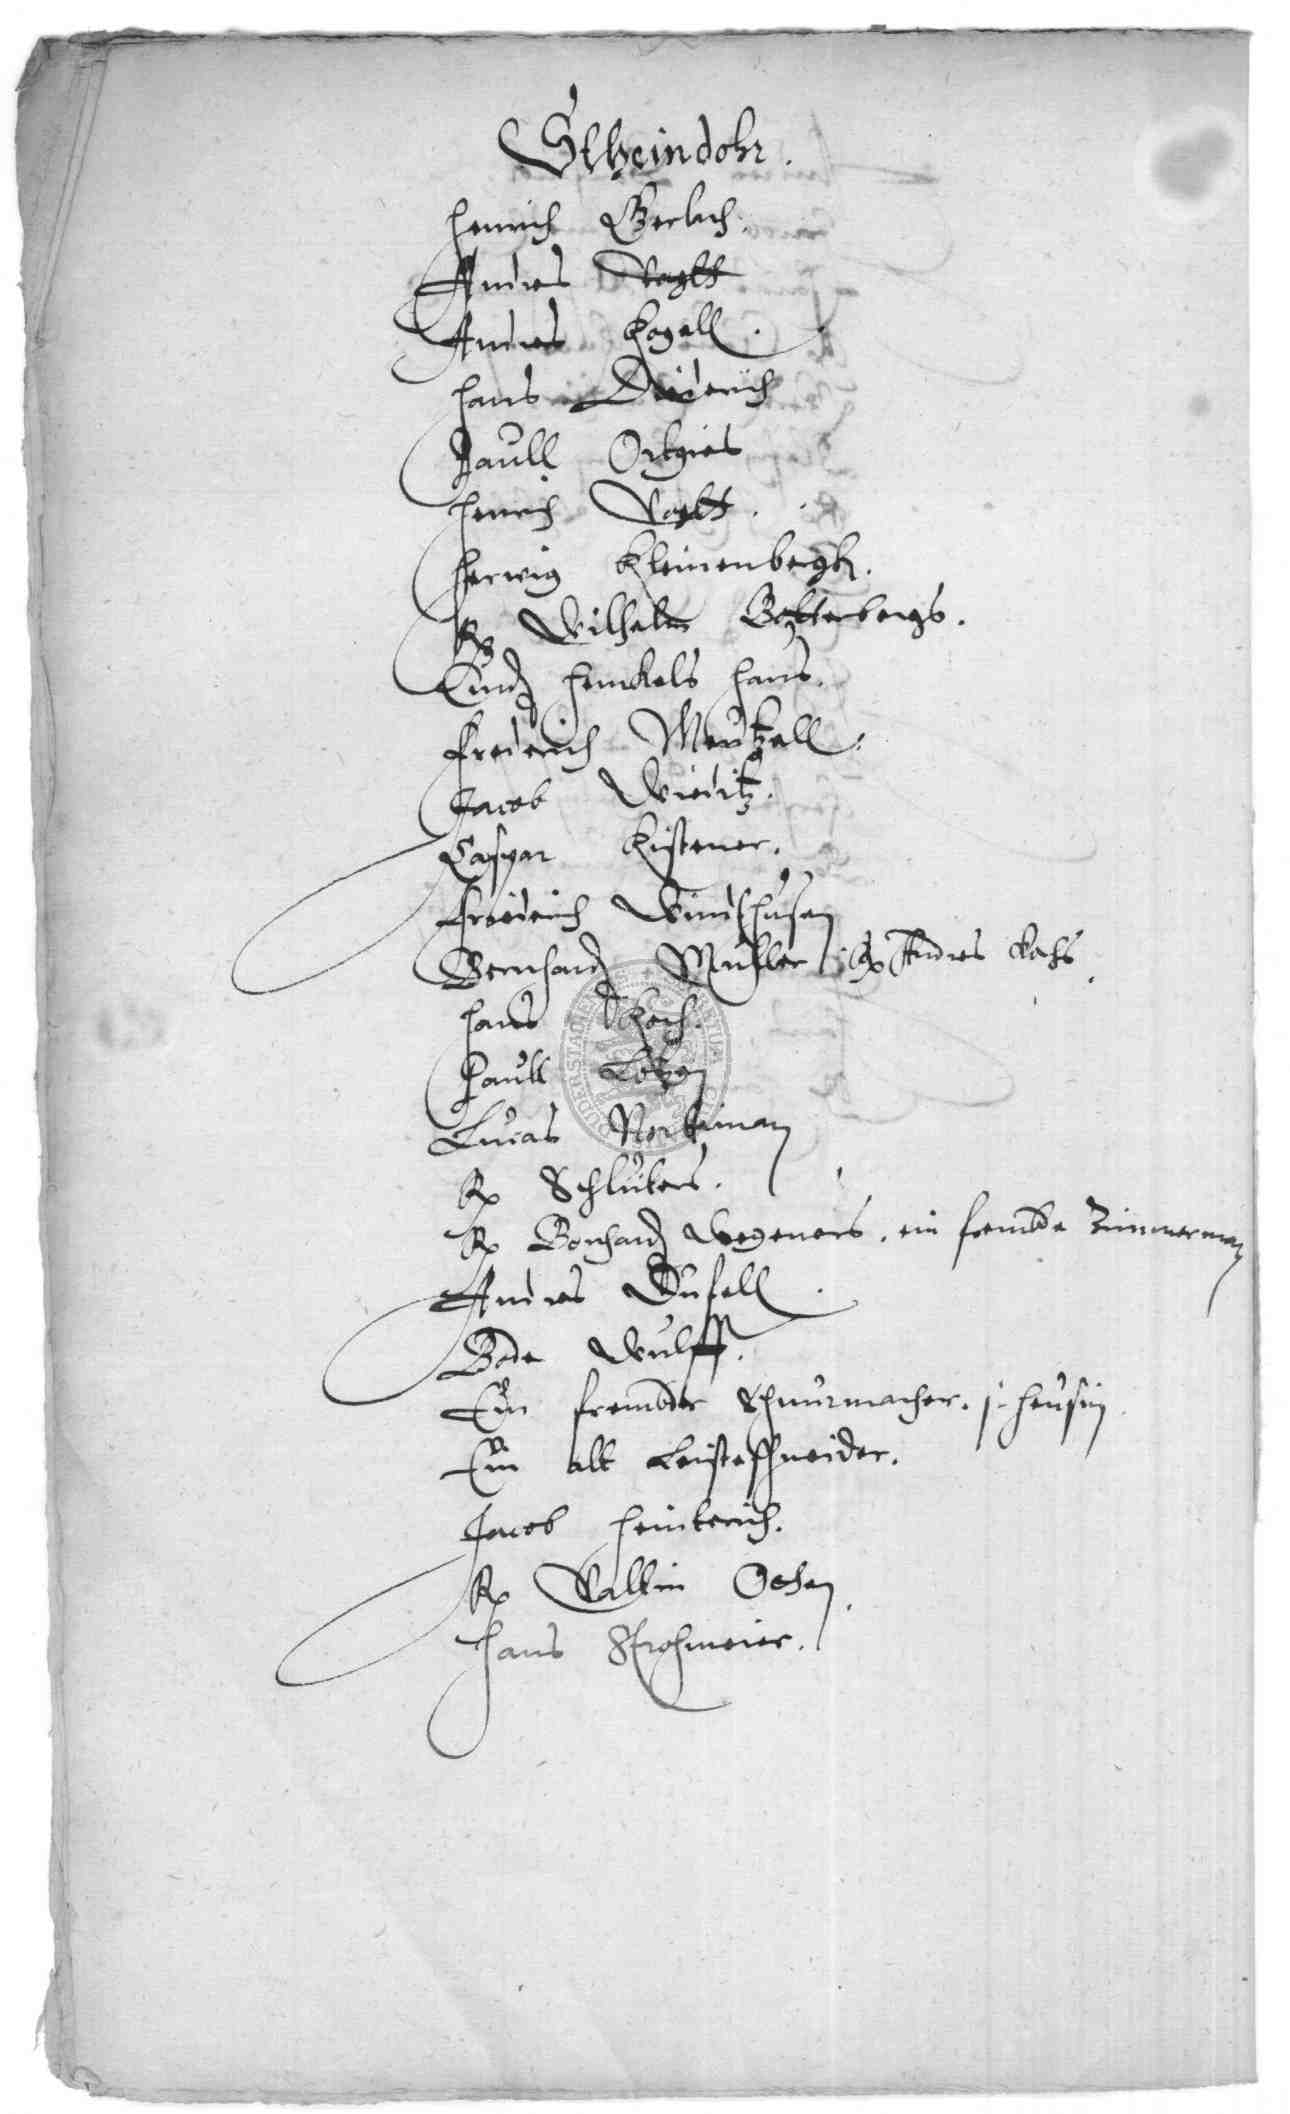 Stheindohr.
Henrich Gerlach.
Andres Vogtt
Andres Kogell.
Hans Diderich
Paull Ortgies
Henrich Vogtt.
Herwig Kleinenbergk.
Rx Wilhelm Bottenbergs.
Curdt Henckels Hans.
Frederich Mentzell.
Jacob Wieditz.
Caspar Kistener.
Friederich Windthusen
Bernhard Müller Rx Andres Kochs
Hans Koch.
Paull
Lucas Nortman
Rx Schlüters.
Rx Bernhard Wegeners. ein frembde Zimmerman
Andres Dusell.
Bode Wulff.
Ein frembder Schnurmacher. j. heusin
Ein alt Leisteschneider.
Jacob Heinterich.
Rx Valtin Ochsen.
Hans Strohmeier.